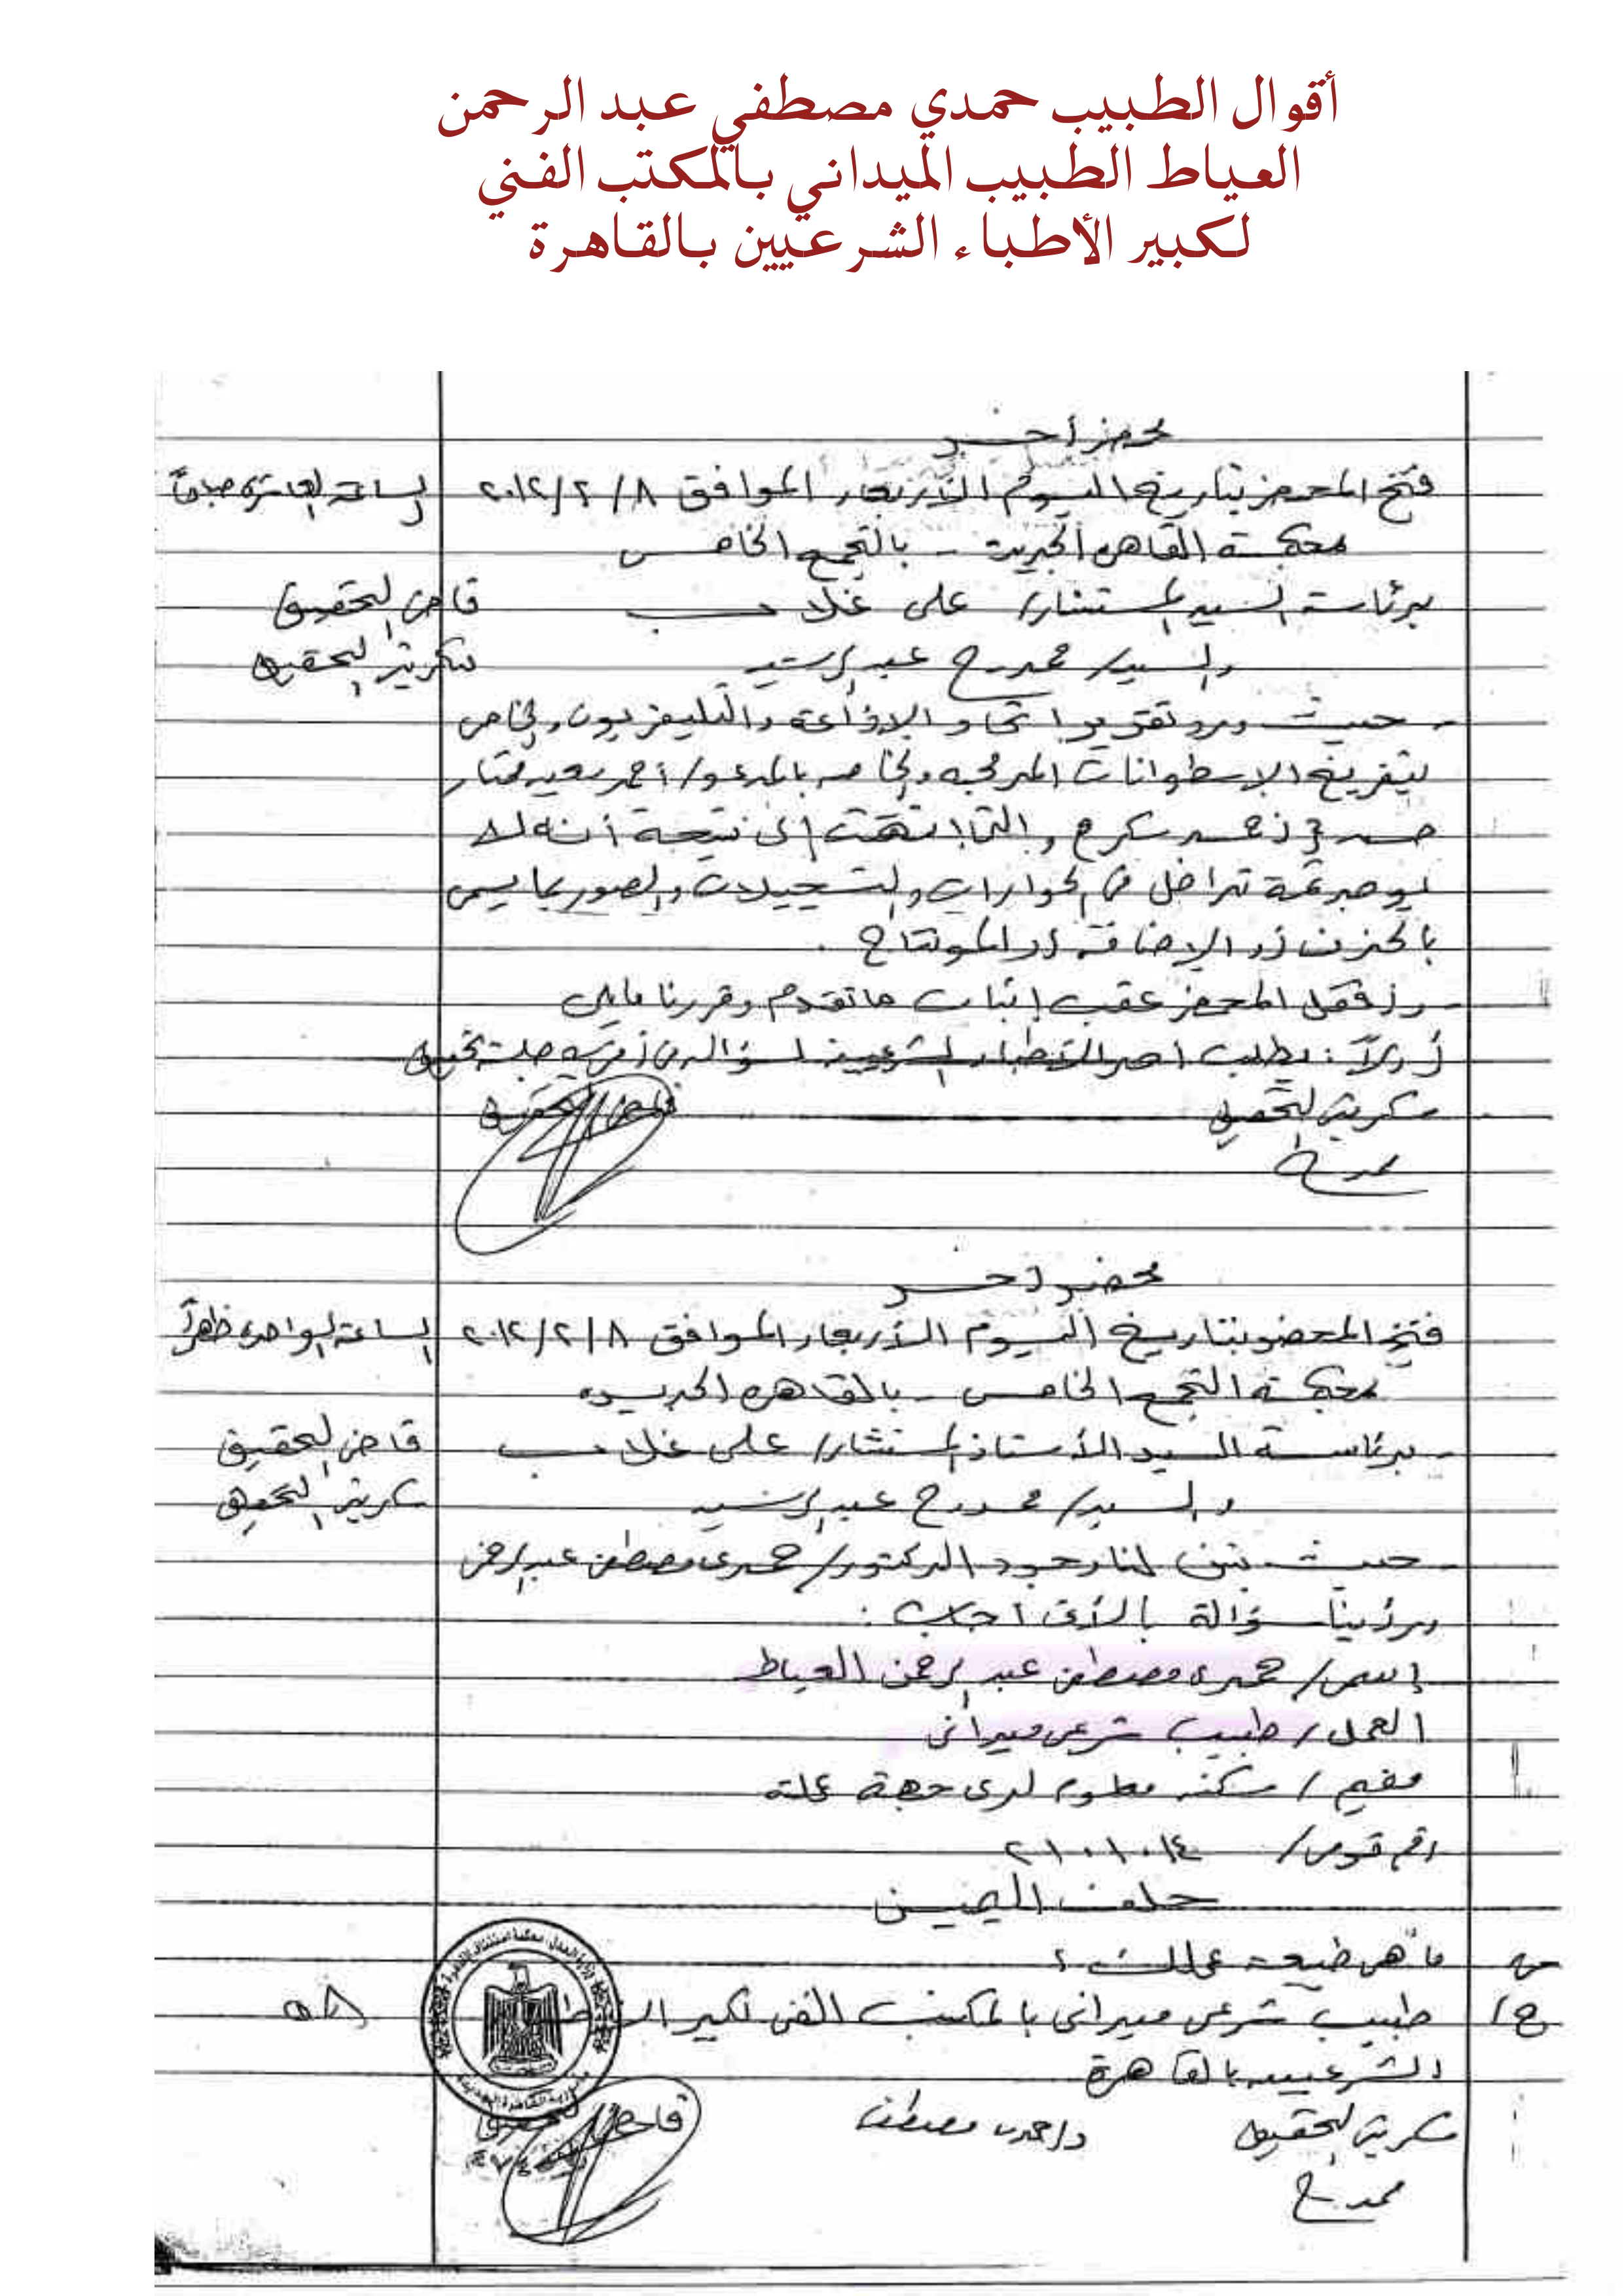 أقوال الطبيب حمدي مصطفي عبد الرحمن
العياط الطبيب الميداني بالمكتب الفني
لكبير الأطباء الشرعيين بالقاهرة
محضر أخر
فتح المحضر بتاريخ اليوم الأربعاء الموافق ٢٠١٢/٢/٨ الساعة العاشرة صباحاً
بمحكمة القاهرة الجديدة - بالتجمع الخامس
برئاسة السيد المستشار/ على غلاب قاضى التحقيق
والسيد/ ممدوح عبد الرشيد سكرتير التحقيق
- حيث ورد تقرير اتحاد الإذاعة والتليفزيون والخاص
بتفريغ الاسطوانات المدمجه والخاصه بالمدعو/ أحمد
والتى انتهت إلى نتيجة أنه لا
يوجد ثمة تداخل فى الحوارات والتسجيلات والصور بما يسمى
بالحذف أو الإضافة أو المونتاج .
- وأقفل المحضر عقب إثبات ما تقدم وقررنا مايلى
أولاً : بطلب احد الأطباء الشرعيين لسؤاله جلسة تحقيق
سكرتير التحقيق قاضى التحقيق
ممدوح
محضر أخر
فتح المحضر بتاريخ اليوم الأربعاء الموافق ٢٠١٢/٢/٨ الساعة الواحدة ظهراً
بمحكمة التجمع الخامس - بالقاهرة الجديده
- برئاسة السيد الأستاذ المستشار/ على غلاب قاضى التحقيق
والسيد/ ممدوح عبد الرشيد سكرتير التحقيق
- حيث تبين لنا وجود الدكتور/ حمدى مصطفى عبد الرحمن
ورأينا سؤالة بالأتى أجاب :
إسمى/ حمدى مصطفى عبد الرحمن العياط
العمل/ طبيب شرعى ميدانى
مقيم / سكنه معلوم لدى جهة عملة
رقم قومى/ ٢١٠٠١٠١٤
حلف اليمين
س ما هى طبيعة عملك ؟
ج/ طبيب شرعى ميدانى بالمكتب الفنى لكبير الأطباء
الشرعيين بالقاهرة
سكرتير التحقيق د/ حمدى مصطفى قاضى التحقيق
ممدوح